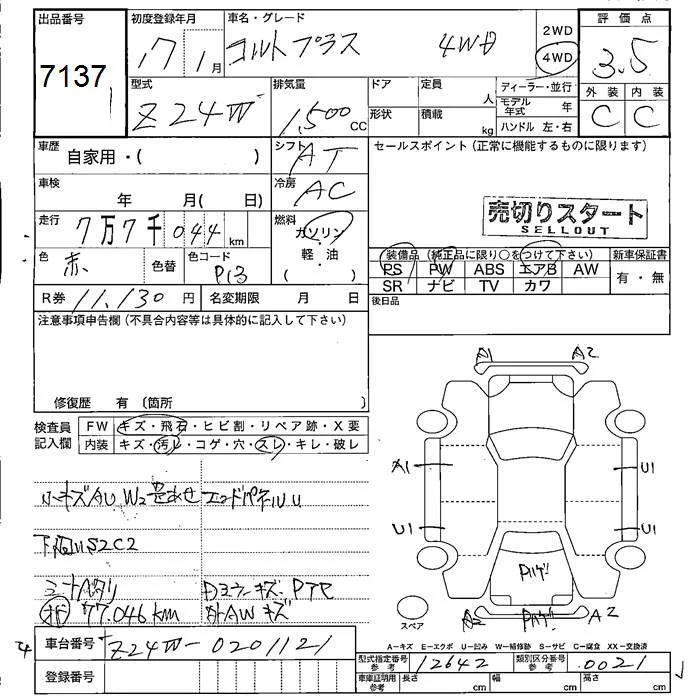 出品番号
7137
初度登録年月
17 1月
車名・グレード
コルトプラス 4WD
2WD
4WD
評価点
3.5
外装 内装
C C
型式
Z24W
排気量
1,500 CC
ドア
定員
人
形状
積載
kg
ディーラー・並行
モデル年式 年
ハンドル 左・右
車歴
自家用・( )
シフト
AT
車検
年 月( 日)
冷房
AC
走行
7万7千044km
燃料
ガソリン・
軽・油
( )
色
赤
色替
色コード
P13
R券 11,130円
名変期限 月 日
セールスポイント(正常に機能するものに限ります)
売切りスタート
SELLOUT
装備品(純正品に限り○をつけて下さい)
新車保証書
PS PW ABS エアB AW
SR ナビ TV カワ
有・無
後日品
注意事項申告欄(不具合内容等は具体的に記入して下さい)
修復歴 有(箇所
検査員記入欄
FW キズ・飛石・ヒビ割・リペア跡・X要
内装 キズ・汚レ・コゲ・穴・スレ・キレ・破レ
小キズAU W2
下廻りS2C2
シートヘタリ
77.046km
外AWキズ
A1 A2
A1 U1
U1 U1
A2 A2
スペア
A-キズ E-エクボ U-凹み W-補修跡 S-サビ C-腐食 XX-交換済
車台番号 Z24W-0201121
登録番号
型式指定番号 参考 12642
類別区分番号 参考 0021
車庫証明用 参考
長さ cm
幅 cm
高さ cm